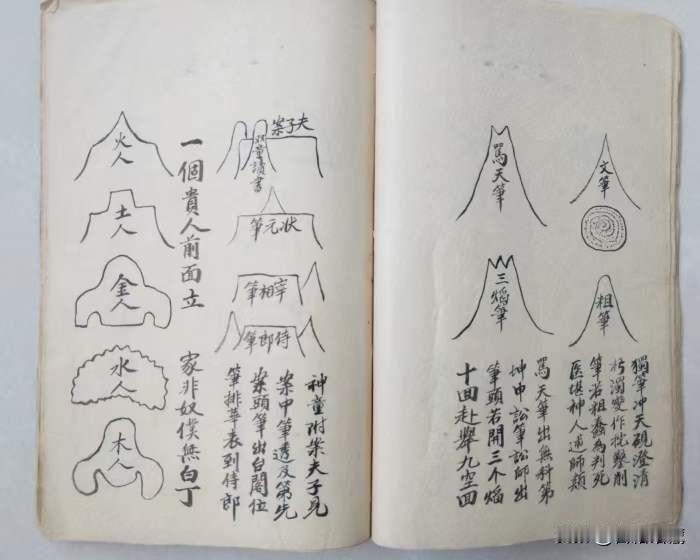 文筆
粗筆
罵天筆
三焰筆
獨筆冲天硯澄清
濁變作批鑿削
筆若粗蠢為判死
医堪神人師類
罵天筆出無科第
坤申訟筆訟師出
筆頭若開三个焰
十回赴舉九空回
夫子案
双童讀書
状元筆
宰相筆
侍郎筆
神童附案夫子見
案中筆透及第先
案頭筆出閣位
筆排華表到侍郎
一個貴人前面立
家非奴僕無白丁
火人
土人
金人
水人
木人